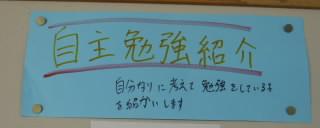 自主勉強紹介
自分なりに考えて勉強をしている子
を紹かいします